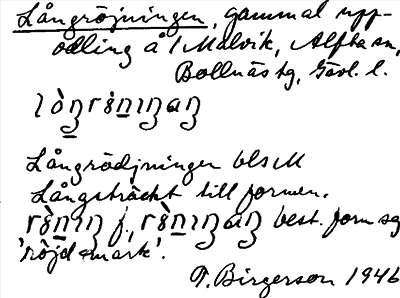 Långröjningen, gammal upp-
odling å l Malvik, Alfta sn,
Bollnäs tg, Gävl. l.
Långrödjningen bls M
Långsträckt till formen.
f., best. form sg
'röjd mark'.
T. Birgerson 1946